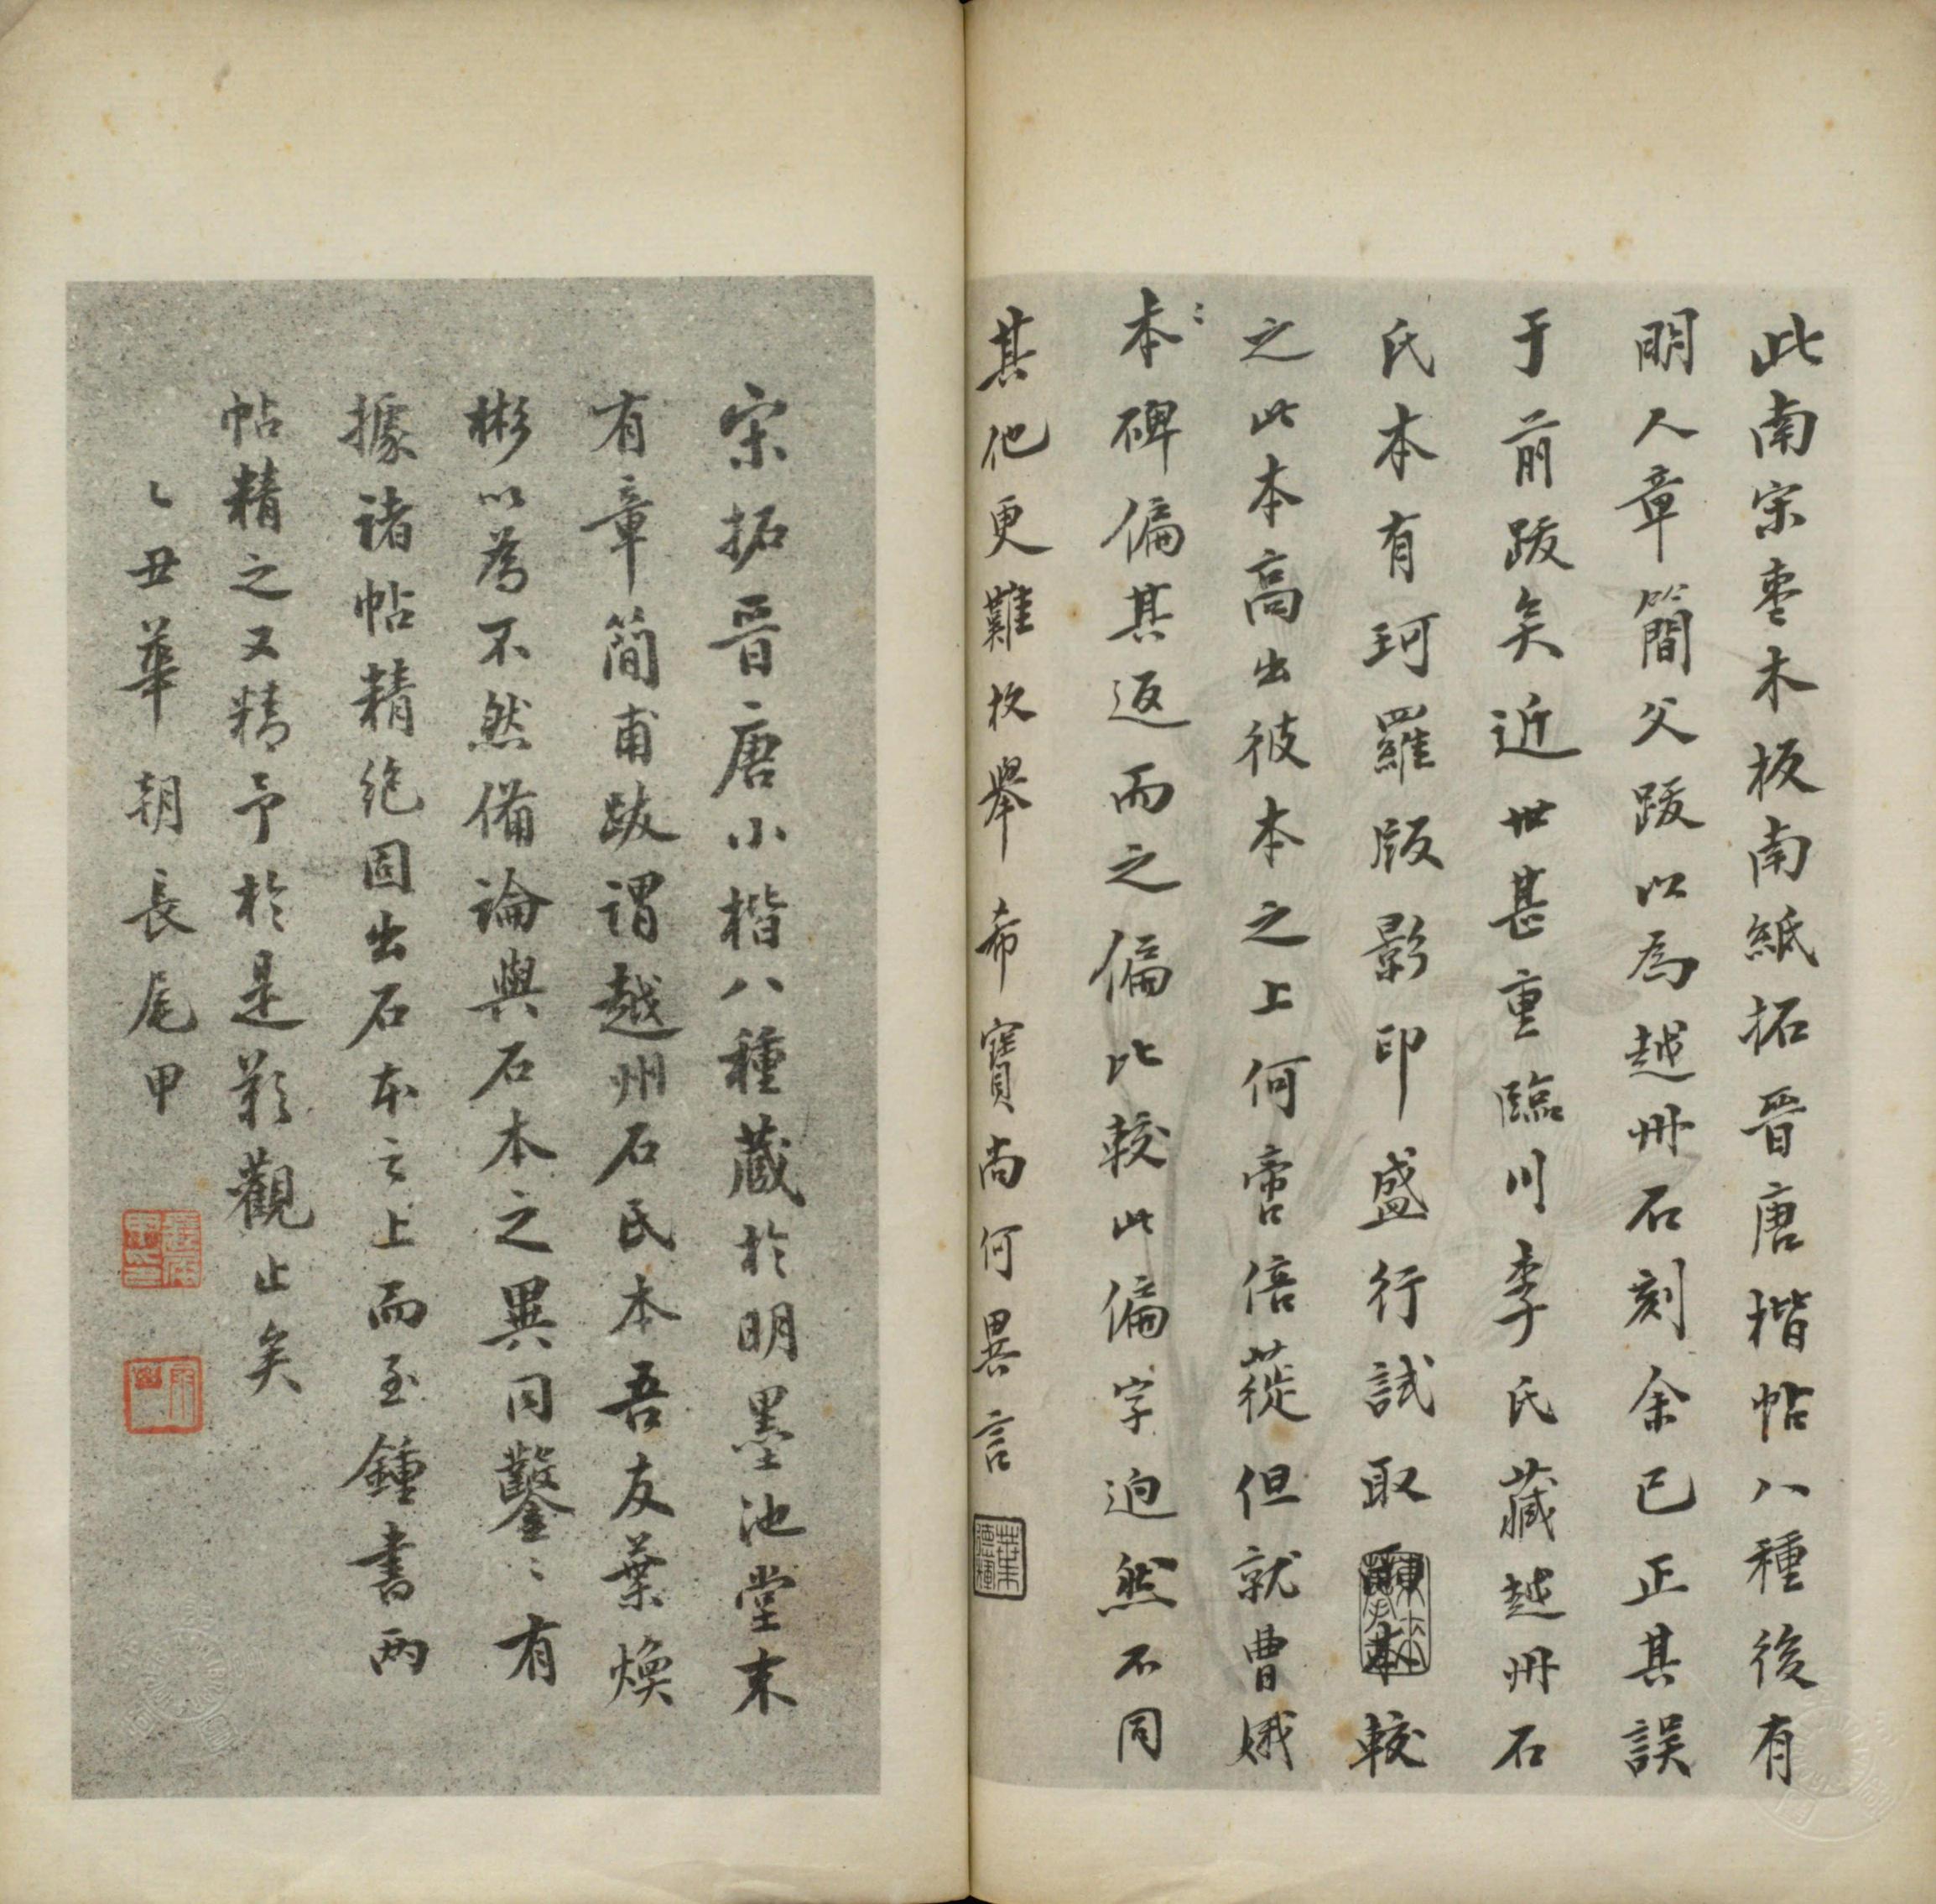 此南宋枣木板南紙拓晉唐楷帖八種後有
明人章簡父跋以為越州石刻余已正其誤
于前跋矣近世甚重臨川李氏藏越州石
氏本有珂羅版影印盛行試取較
之此本高出彼本之上何啻倍蓰但就曹娥
本碑偏其返而之偏比較此偏字迥然不同
其他更難枚舉希寶尚何異言
葉德輝
宋拓晉唐小楷八種藏於明墨池堂末
有章簡甫跋謂越州石氏本吾友葉煥
彬以為不然備論與石本之異同鑿〻有
據諸帖精絕固出石本之上而至鍾書兩
帖精之又精予於是歎觀止矣
乙丑華朝長尾甲